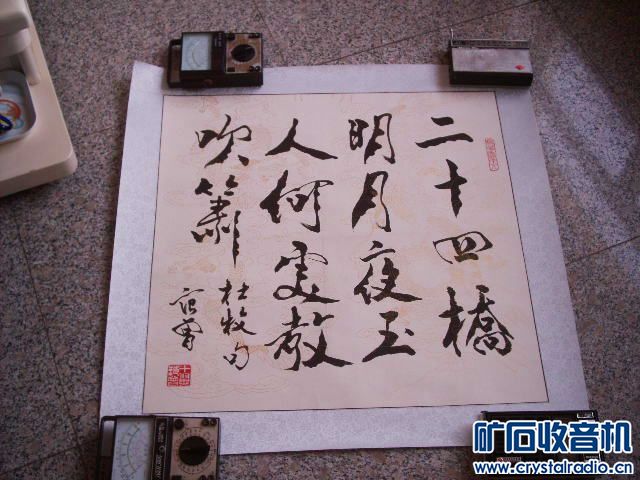 二十四橋
明月夜玉
人何處教
吹簫
杜牧句
范曾
矿石收音机
www.crystalradio.cn